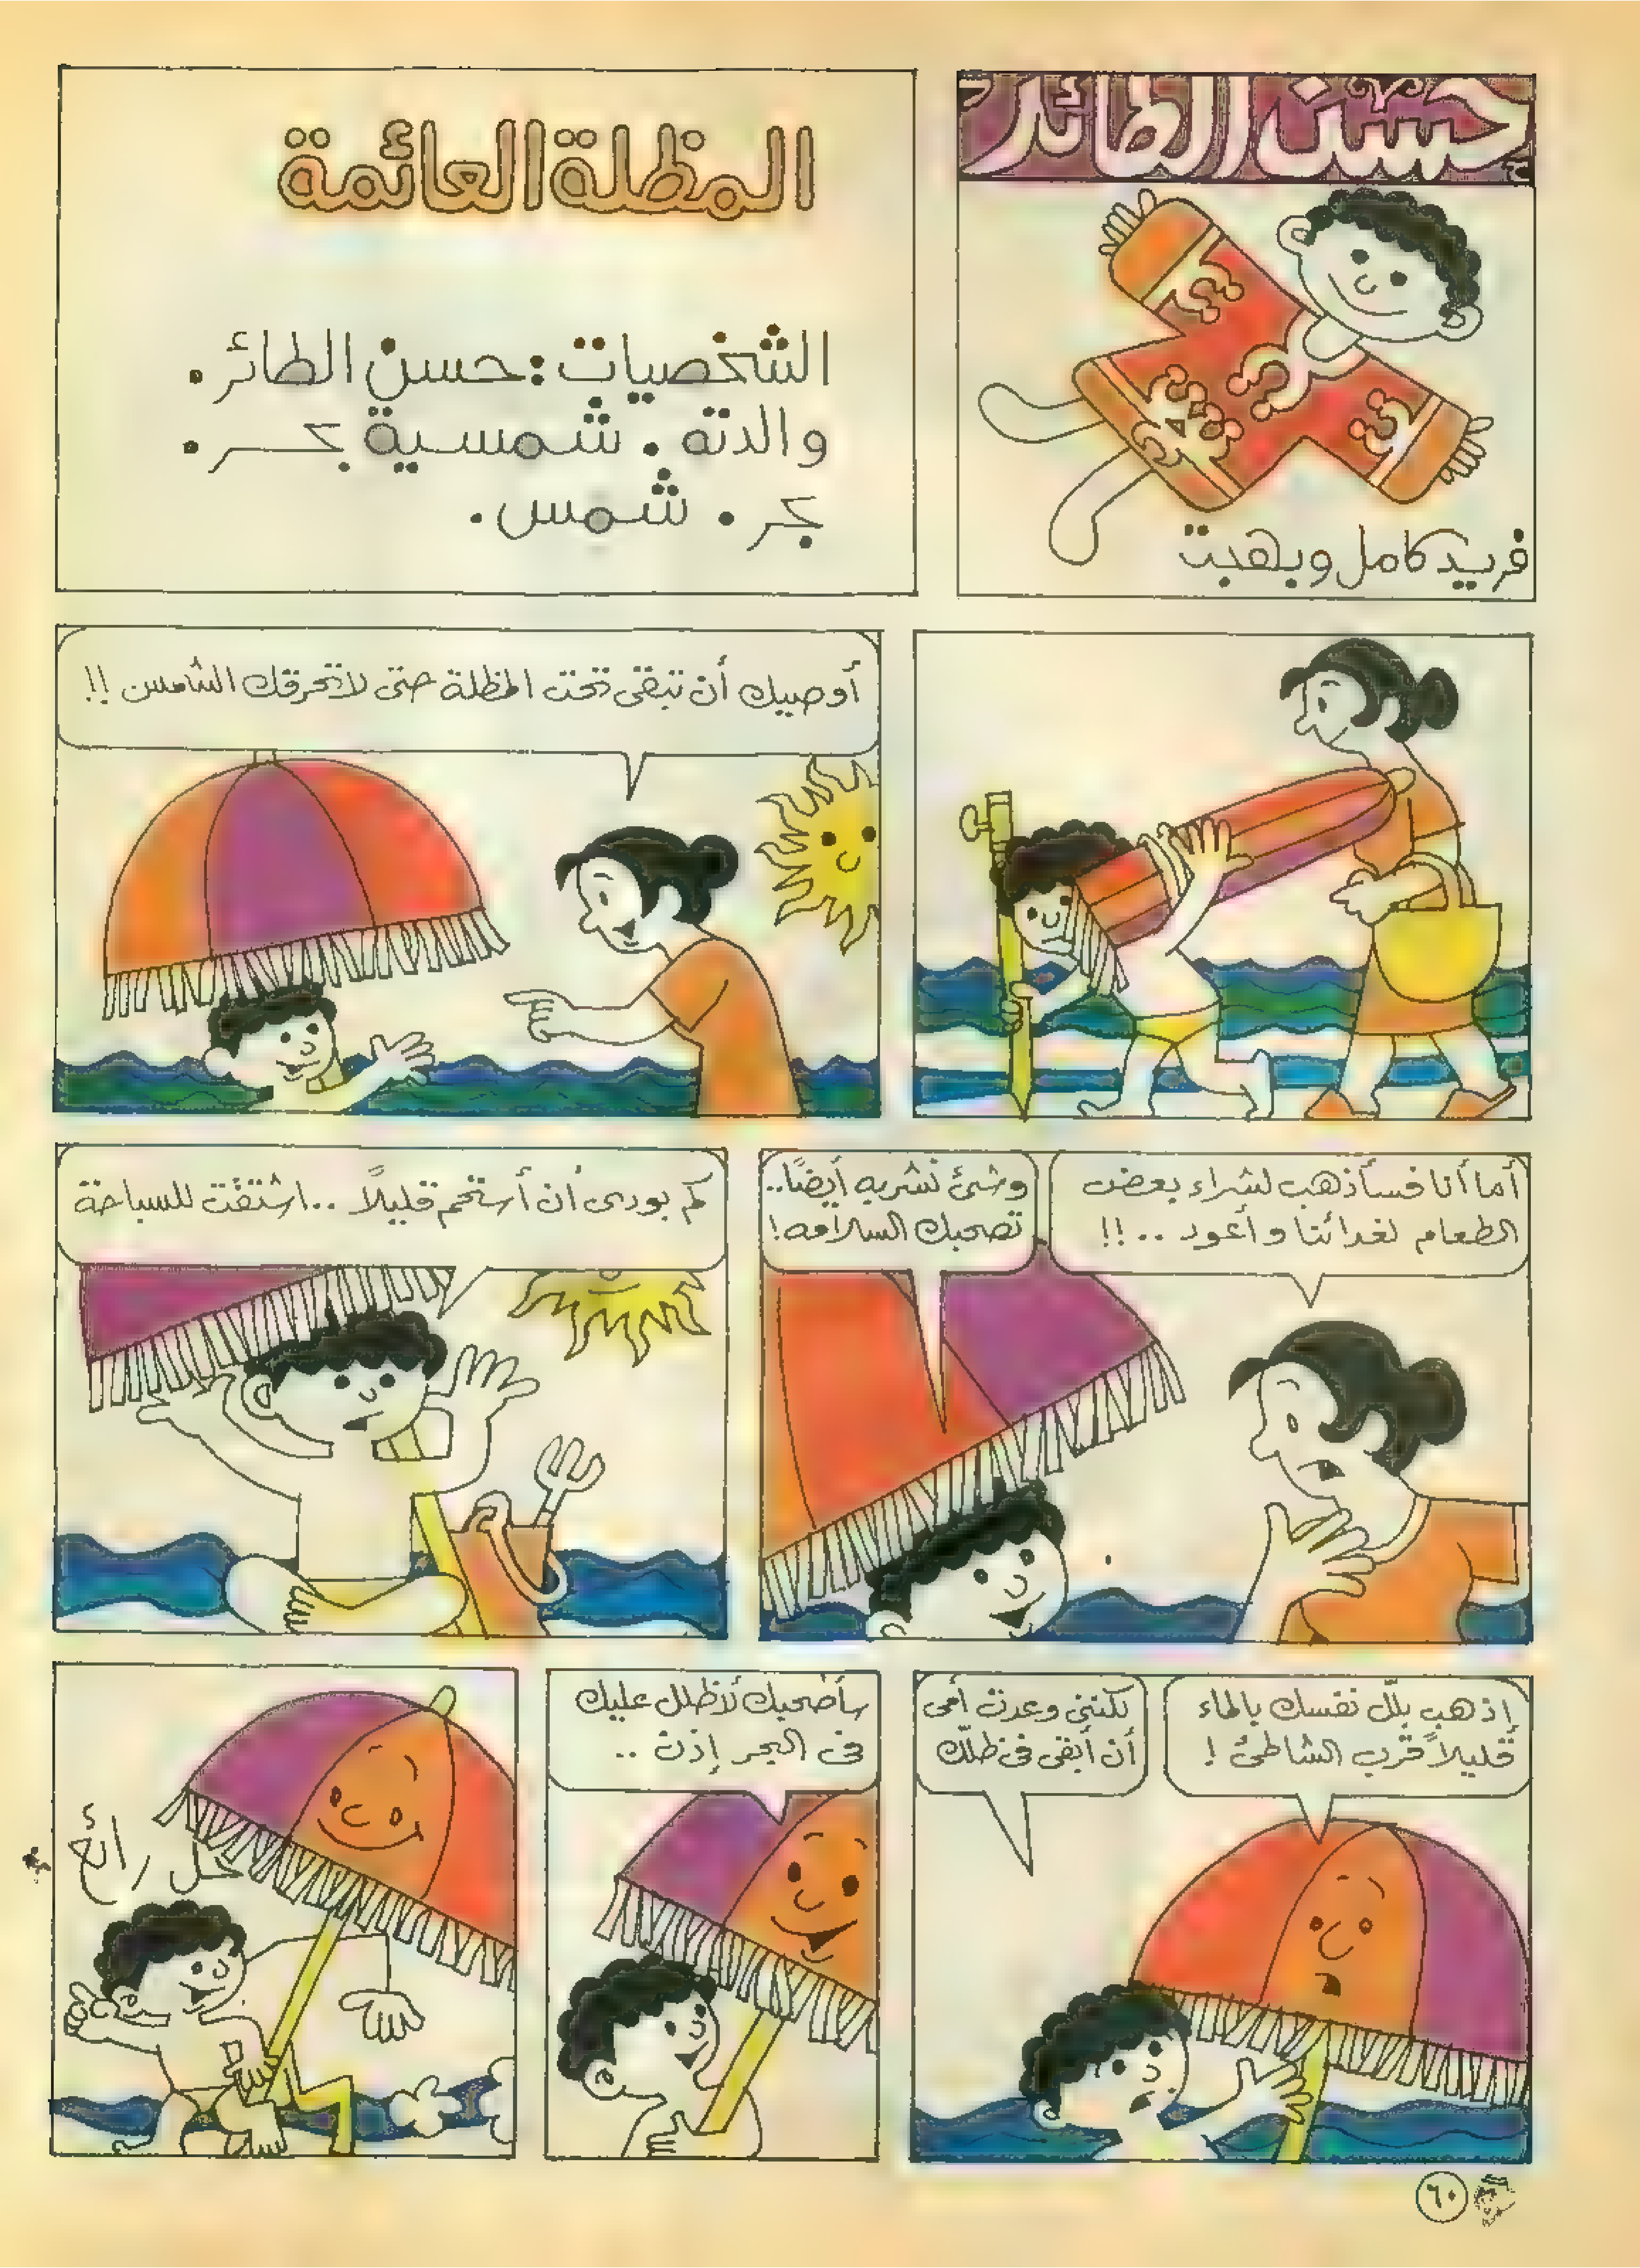 حسن الطائر
فريد كامل وبهجت
المظلة العائمة
الشخصيات: حسن الطائر.
والدته. شمسية بحر.
بحر. شمس.
أوصيك أن تبقى تحت المظلة حتى لا تحرقك الشمس !!
أما أنا فسأذهب لشراء بعض
الطعام لغدائنا وأعود ..!!
وشئ نشربه أيضًا..
تصحبك السلامه!
كم بودى أن أستحم قليلاً .. اشتقت للسباحة
إذهب بلّل نفسك بالماء
قليلاً قرب الشاطئ !
لكننى وعدت أمى
أن أبقى فى ظلّك
سأصحبك لأظلل عليك
فى البحر إذن ..
حل رائع
٦٠